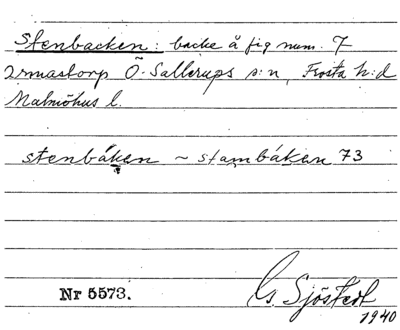 Stenbacken: backe å fig num. 7
Ö. Sallerups s:n, Frosta h:d
Malmöhus l.
stenbáken ~ stambáken 73
Nr 5573.
G. Sjöstedt
1940